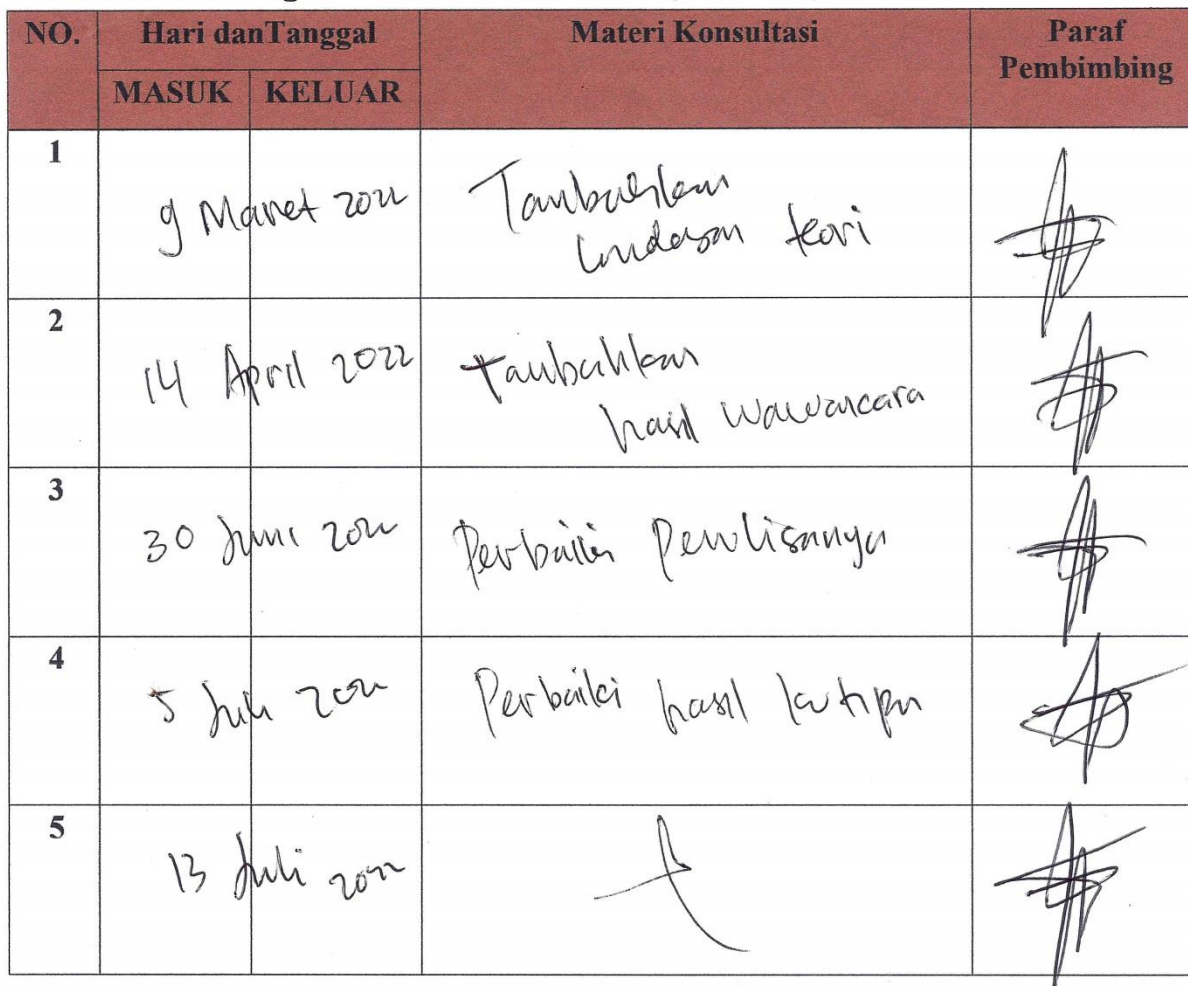 NO. Hari danTanggal Materi Konsultasi Paraf
Pembimbing
MASUK KELUAR
1
9 Maret 2022 Tambahkan
landasan teori
2
14 April 2022 Tambahkan
hasil wawancara
3
30 Juni 2022 Perbaiki Penulisanya
4
5 Juli 2022 Perbaiki hasil kutipan
5
13 Juli 2022